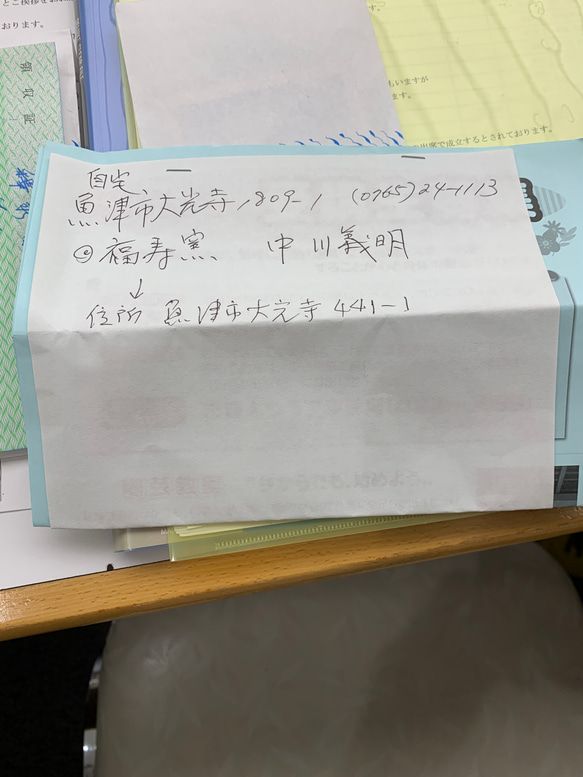 とご挨拶をお
おります。
領収証
いますが
ます。
の出席で成立するとされております。
自宅
魚津市大光寺1809-1 (0765)24-1113
◎福寿窯 中川義明
↓
住所 魚津市大光寺441-1